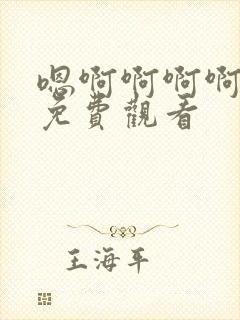 嗯啊啊啊啊
免費觀看
王海平